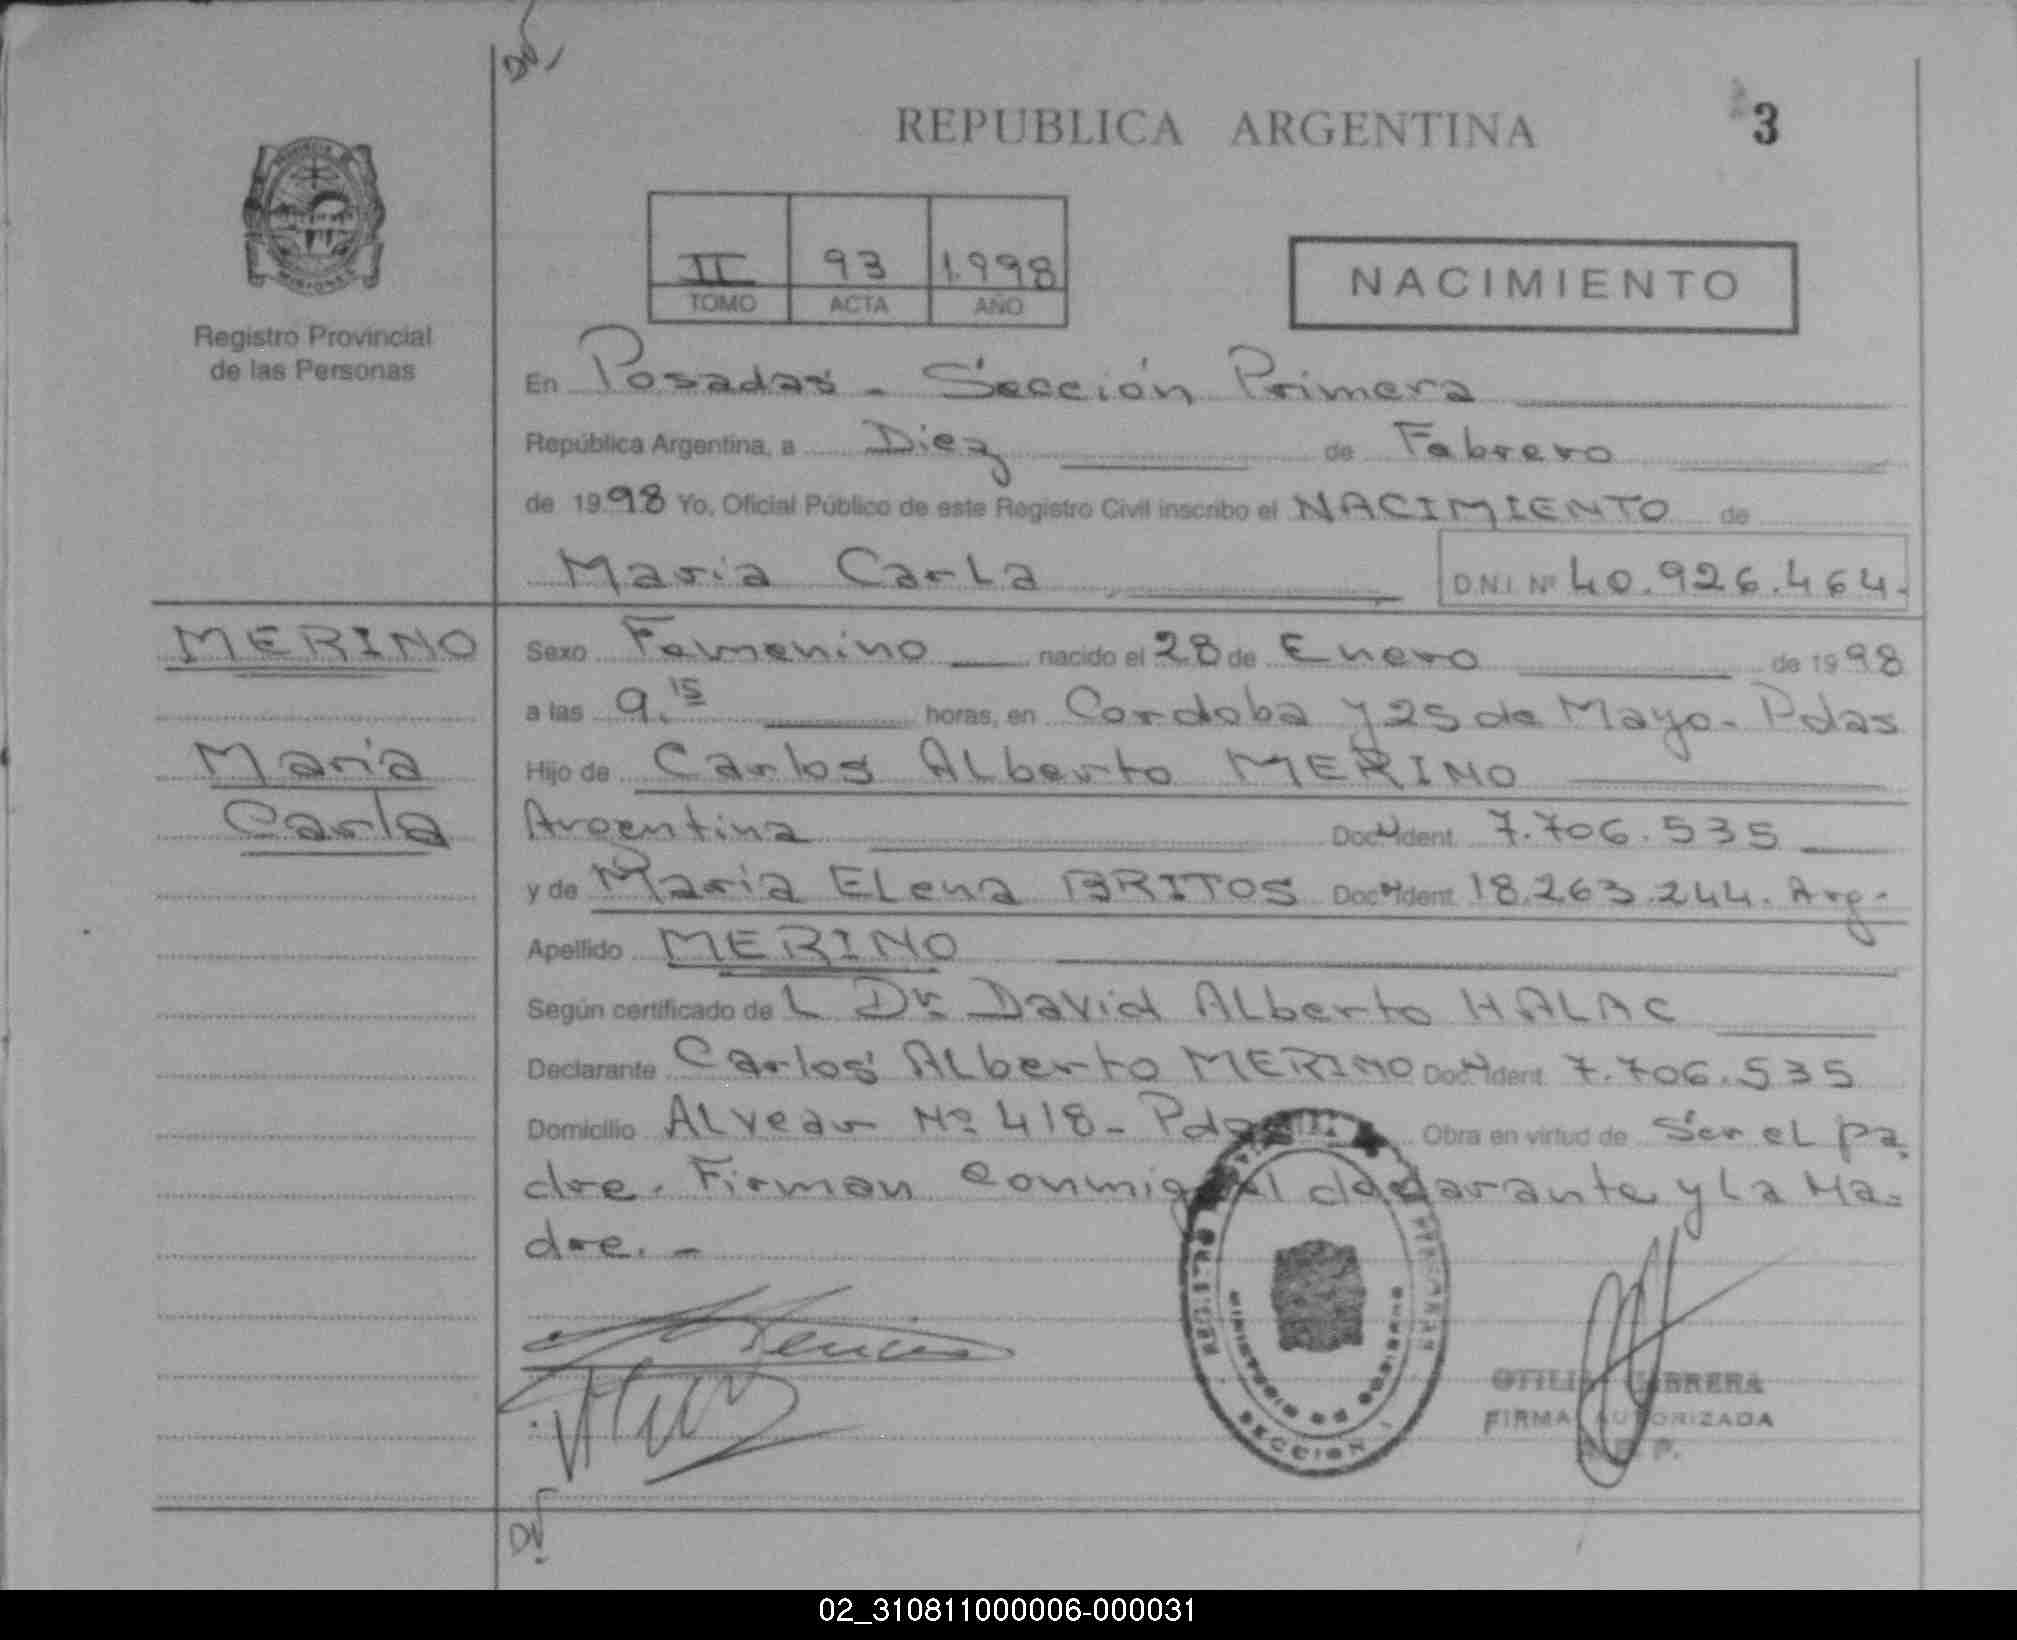 DV
REPUBLICA ARGENTINA
3
Registro Provincial
de las Personas
II 93 1.998
TOMO ACTA AÑO
NACIMIENTO
En Posadas - Sección Primera
República Argentina, a Diez de Febrero
de 1998 Yo, Oficial Público de este Registro Civil inscribo el NACIMIENTO de
Maria Carla D.N.I. Nº 40.926.464.
MERINO
Maria
Carla
Sexo Femenino nacido el 28 de Enero de 1998
a las 9.15 horas, en Cordoba y 25 de Mayo - Pdas
Hijo de Carlos Alberto MERINO
Argentina Doc. Ident. 7.706.535
y de Maria Elena BRITOS Doc. Ident. 18.263.244. Arg.
Apellido MERINO
Según certificado de L Dr. David Alberto HALAC
Declarante Carlos Alberto MERINO Doc. Ident. 7.706.535
Domicilio Alvear Nº 418 - Pdas Obra en virtud de Ser el pa
dre. Firman conmigo el declarante y la Ma-
dre. -
MINISTERIO DE GOBIERNO
SECCION 1
OTILIA CABRERA
FIRMA AUTORIZADA
DV
02_310811000006-000031